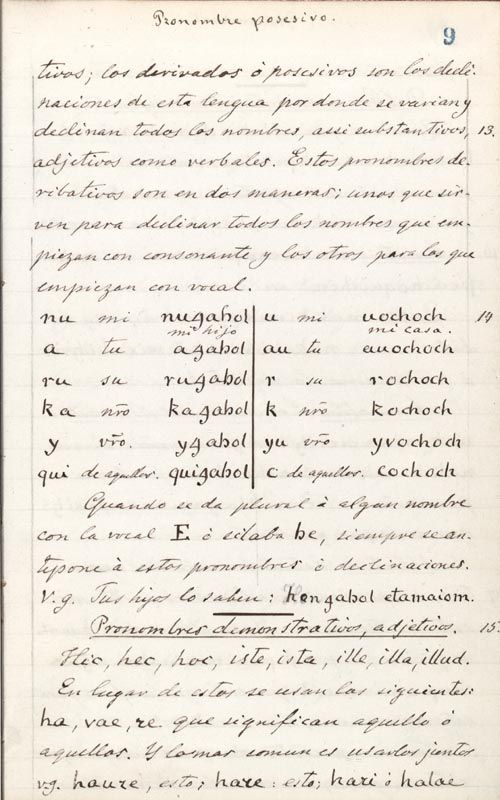 Pronombre posesivo.
9
tivos; los derivados ó posesivos son los decli-
naciones de esta lengua por donde se varian y
declinan todos los nombres, assi substantivos, 13.
adjetivos como verbales. Estos pronombres de-
ribativos son en dos maneras; unos que sir-
ven para declinar todos los nombres que em-
piezan con consonante, y los otros para los que
empiezan con vocal.
nu mi nugahol u mi uochoch 14
mi hijo mi casa.
a tu agahol au tu auochoch
ru su rugahol r su rochoch
ka nrō kagahol k nrō kochoch
y vrō. ygahol yu vrō yvochoch
qui de aquellos. quigahol c de aquellos. cochoch
Quando se da plural à algun nombre
con la vocal E ó silaba he, siempre se an-
tepone à estos pronombres ò declinaciones.
V.g. Tus hijos lo saben: gahol etamaiom.
Pronombres demonstrativos, adjetivos. 15.
Hic, hec, hoc, iste, ista, ille, illa, illud.
En lugar de estos se usan los siguientes:
ha, vae, re que significan aquello ó
aquellos. Y lo mas comun es usarlos juntos
v.g. haure, esto; hare: esto; hari ó halae